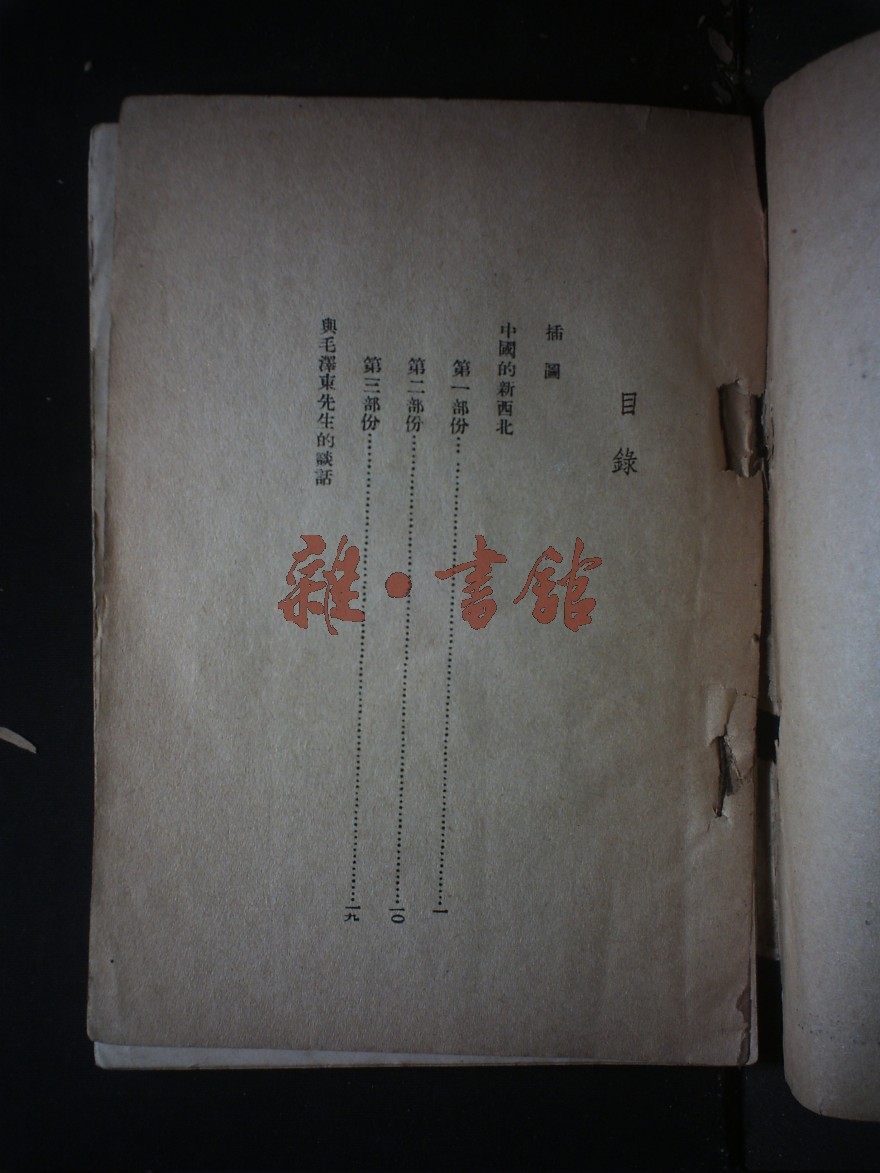 目錄
插圖
中國的新西北
第一部份… ……………………………一
第二部份………………………………一〇
第三部份………………………………一九
與毛澤東先生的談話
雜·書館